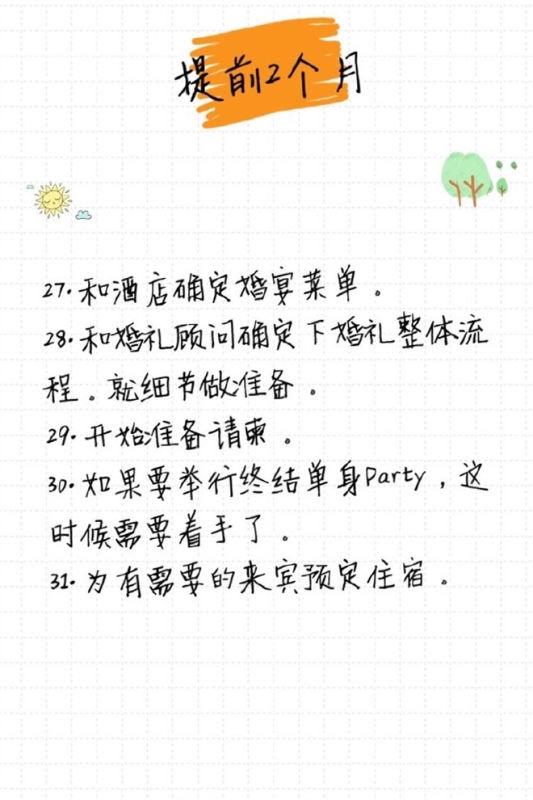 提前2个月
27.和酒店确定婚宴菜单。
28.和婚礼顾问确定下婚礼整体流
程。就细节做准备。
29.开始准备请柬。
30.如果要举行终结单身Party,这
时候需要着手了。
31.为有需要的来宾预定住宿。